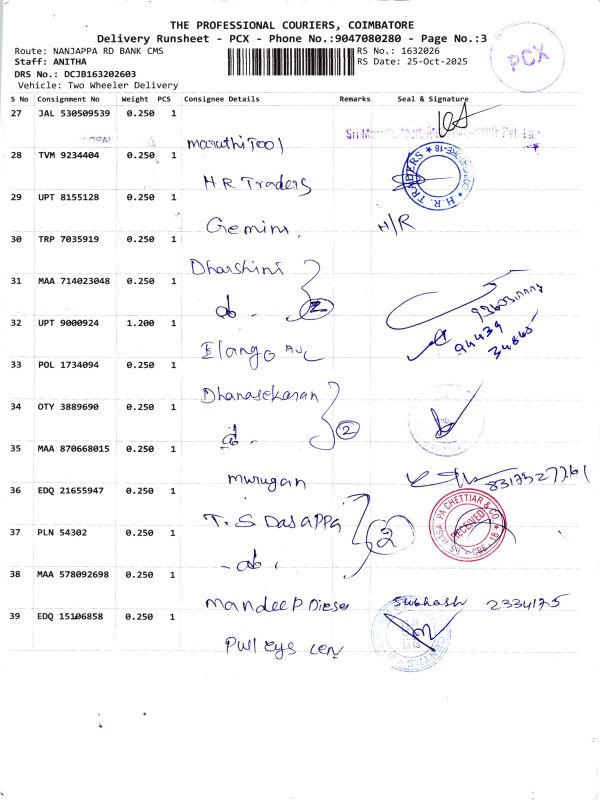 THE PROFESSIONAL COURIERS, COIMBATORE
Delivery Runsheet - PCX - Phone No.:9047080280 - Page No.:3
Route: NANJAPPA RD BANK CMS
RS No.: 1632026
Staff: ANITHA
RS Date: 25-Oct-2025
DRS No.: DCJB163202603
Vehicle: Two Wheeler Delivery
PCX
S No Consignment No Weight PCS Consignee Details Remarks Seal & Signature
27 JAL 530509539 0.250 1
marathi Tool
28 TVM 9234404 0.250 1
HR Traders
H.R. TRADERS
29 UPT 8155128 0.250 1
Gemini.
H/R
30 TRP 7035919 0.250 1
Dharshini
31 MAA 714023048 0.250 1
do. 2
32 UPT 9000924 1.200 1
Elango
94439
33 POL 1734094 0.250 1
Dhanasekaran
34 OTY 3889690 0.250 1
do. 2
35 MAA 870668015 0.250 1
murugan
36 EDQ 21655947 0.250 1
T. S Dasappa
CHETTIAR & CO
RECEIVED
37 PLN 54302 0.250 1
- do. 2
38 MAA 578092698 0.250 1
Mandeep Diesel
Subhash 2334175
39 EDQ 15106858 0.250 1
Pulleys cen